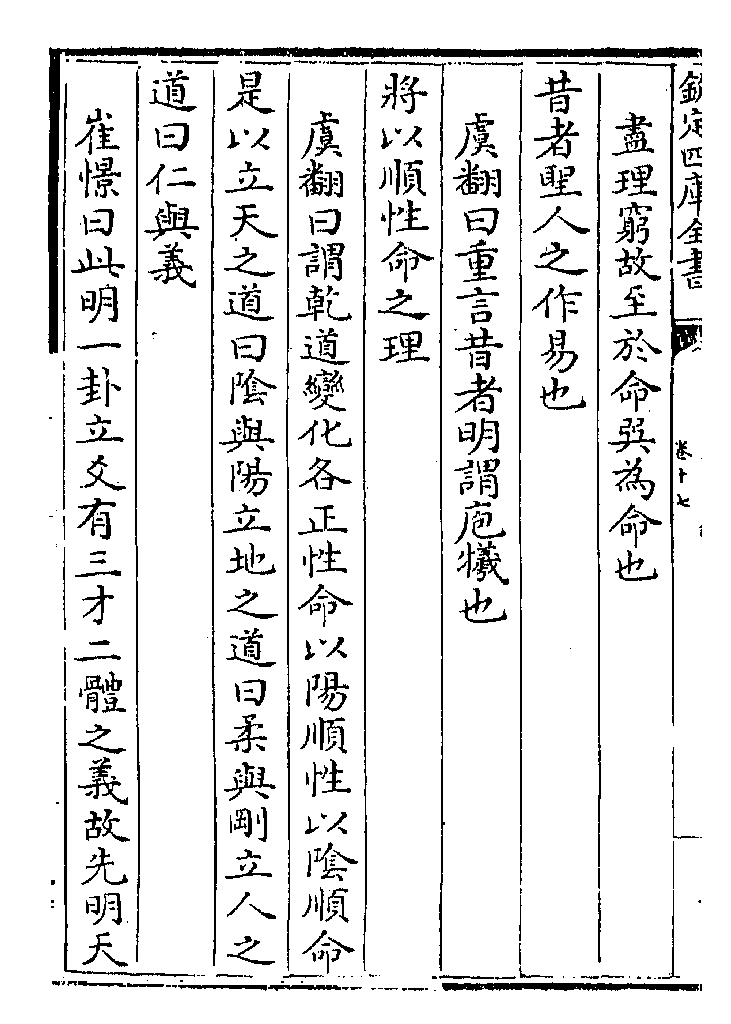 欽定四庫全書
卷十七
盡理窮故至於命巽為命也
昔者聖人之作易也
虞翻曰重言昔者明謂庖犧也
將以順性命之理
虞翻曰謂乾道變化各正性命以陽順性以陰順命
是以立天之道曰陰與陽立地之道曰柔與剛立人之
道曰仁與義
崔憬曰此明一卦立爻有三才二體之義故先明天